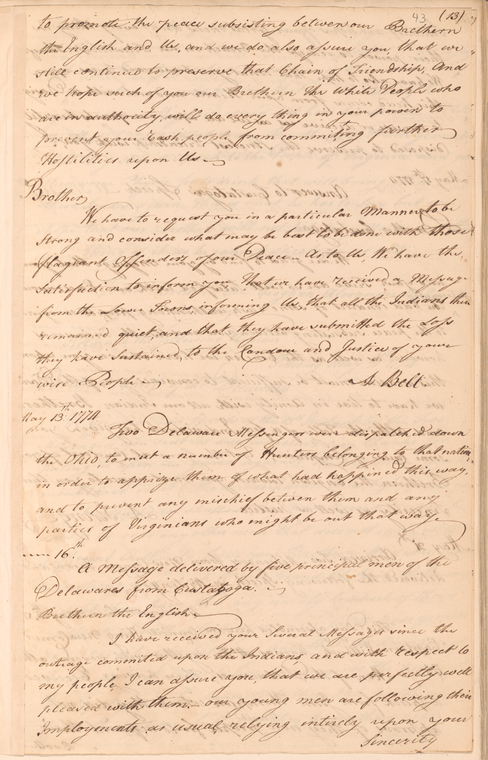 43 (13)
to promote the peace subsisting between our Brethern
the English and Us, and we do also assure you, that we
still continue to preserve that Chain of Friendship, And
we hope such of you our Brethern the White People who
are in authority, will do every thing in your power to
prevent your rash people from commiting further
Hostilities upon Us
Brother,
We have to request you in a particular Manner to be
Strong and consider what may be best to be done with those
flagrant Offenders of our Peace — As to Us We have the
Satisfaction to inform you That we have received a Message
from the Lower Towns, informing Us, that all the Indians there
remained quiet, and that they have submitted the Loss
they have sustained, to the Candour and Justice of your
wise People A Belt
May 13th 1774
Two Delaware Messengers were dispatch'd down
the Ohio, to meet a number of Hunters belonging to that nation
in order to apprize them of what had happined this way,
and to prevent any mischief betwen them and any
parties of Virginians who might be out that way
16th
A Message delivered by five principal men of the
Delawares from Custaloga.
Brethern the English
I have received your Several Messages since the
outrage commited upon the Indians and with respect to
my people I can assure you, that we are perfectly well
pleased with them — our young men are following their
Imployments as usual relying intirely upon your
Sincerity